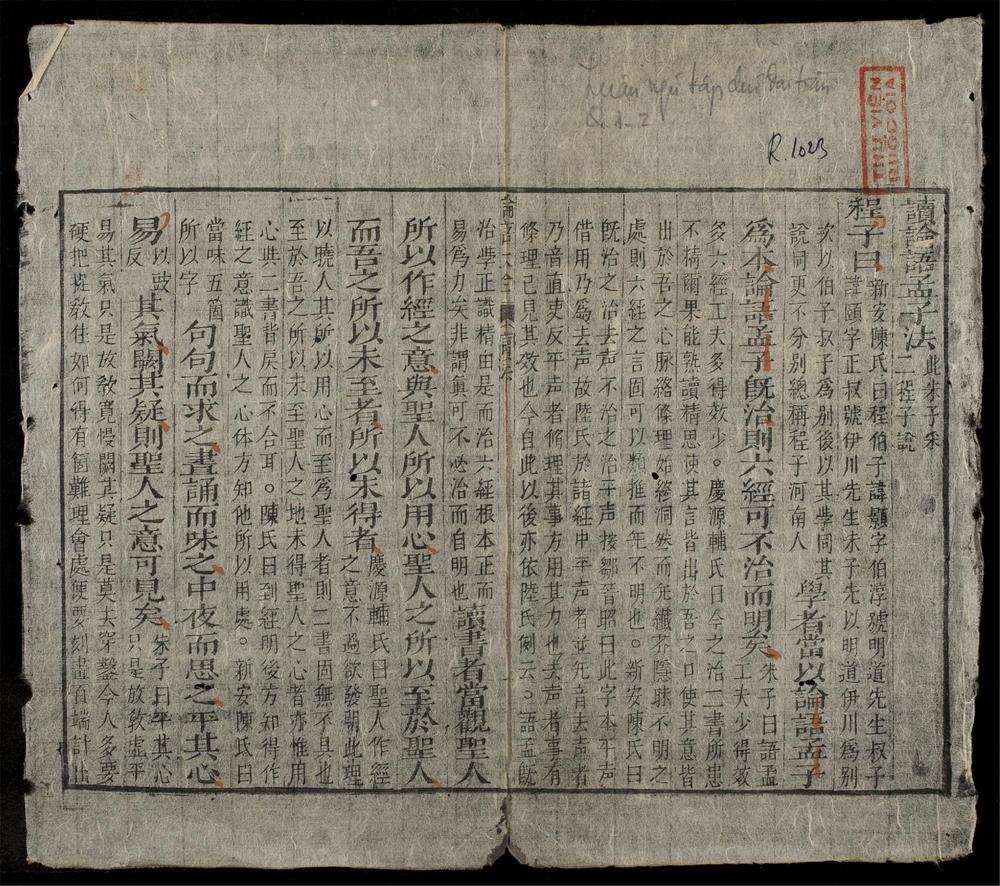 讀論語孟子法 此朱子采
二程子說
程子曰 新安陳氏曰程伯子諱顥字伯淳號明道先生叔子
諱頤字正叔號伊川先生朱子先以明道伊川爲別
次以伯子叔子爲別後以其學同其
說同更不分別總稱程子河南人 學者當以論語孟子
爲本論語孟子旣治則六經可不治而明矣 朱子曰語孟
工夫少得效
多六經工夫多得效少。慶源輔氏曰今之治二書所患
不精爾果能熟讀精思使其言皆出於吾之口使其意皆
出於吾之心脉絡條理始終洞然而无纖芥隱昧不明之
處則六經之言固可以類推而无不明也。新安陳氏曰
旣治之治去声不治之治平声按鄒晉昭曰此字本平声
借用乃爲去声故陸氏於諸經中平声者並无音去声者
乃音直吏反平声者脩理其事方用其力也去声者事有
條理已見其效也今自此以後亦依陸氏例云。語孟旣
治學正識精由是而治六經根本正而
易爲力矣非謂眞可不必治而自明也 讀書者當觀聖人
所以作經之意與聖人所以用心聖人之所以至於聖人
而吾之所以未至者所以未得者 慶源輔氏曰聖人作經
之意不過欲發明此理
以曉人其所以用心而至爲聖人者則二書固無不具也
至於吾之所以未至聖人之地未得聖人之心者亦惟用
心與二書背戾而不合耳。陳氏曰到經明後方知得作
經之意識聖人之心体方知他所以用處。新安陳氏曰
當味五箇
所以字 句句而求之晝誦而味之中夜而思之平其心
易 以豉
反 其氣闕其疑則聖人之意可見矣 朱子曰平其心
只是放敎虛平
易其氣只是放敎寬慢闕其疑只是莫去穿鑿今人多要
硬把捉敎住如何得有箇難理會處便要刻畫百端計出
R.1023
THU VIEN
QUOC GIA
Luận ngữ tập chú đại toàn
Q. 1-2